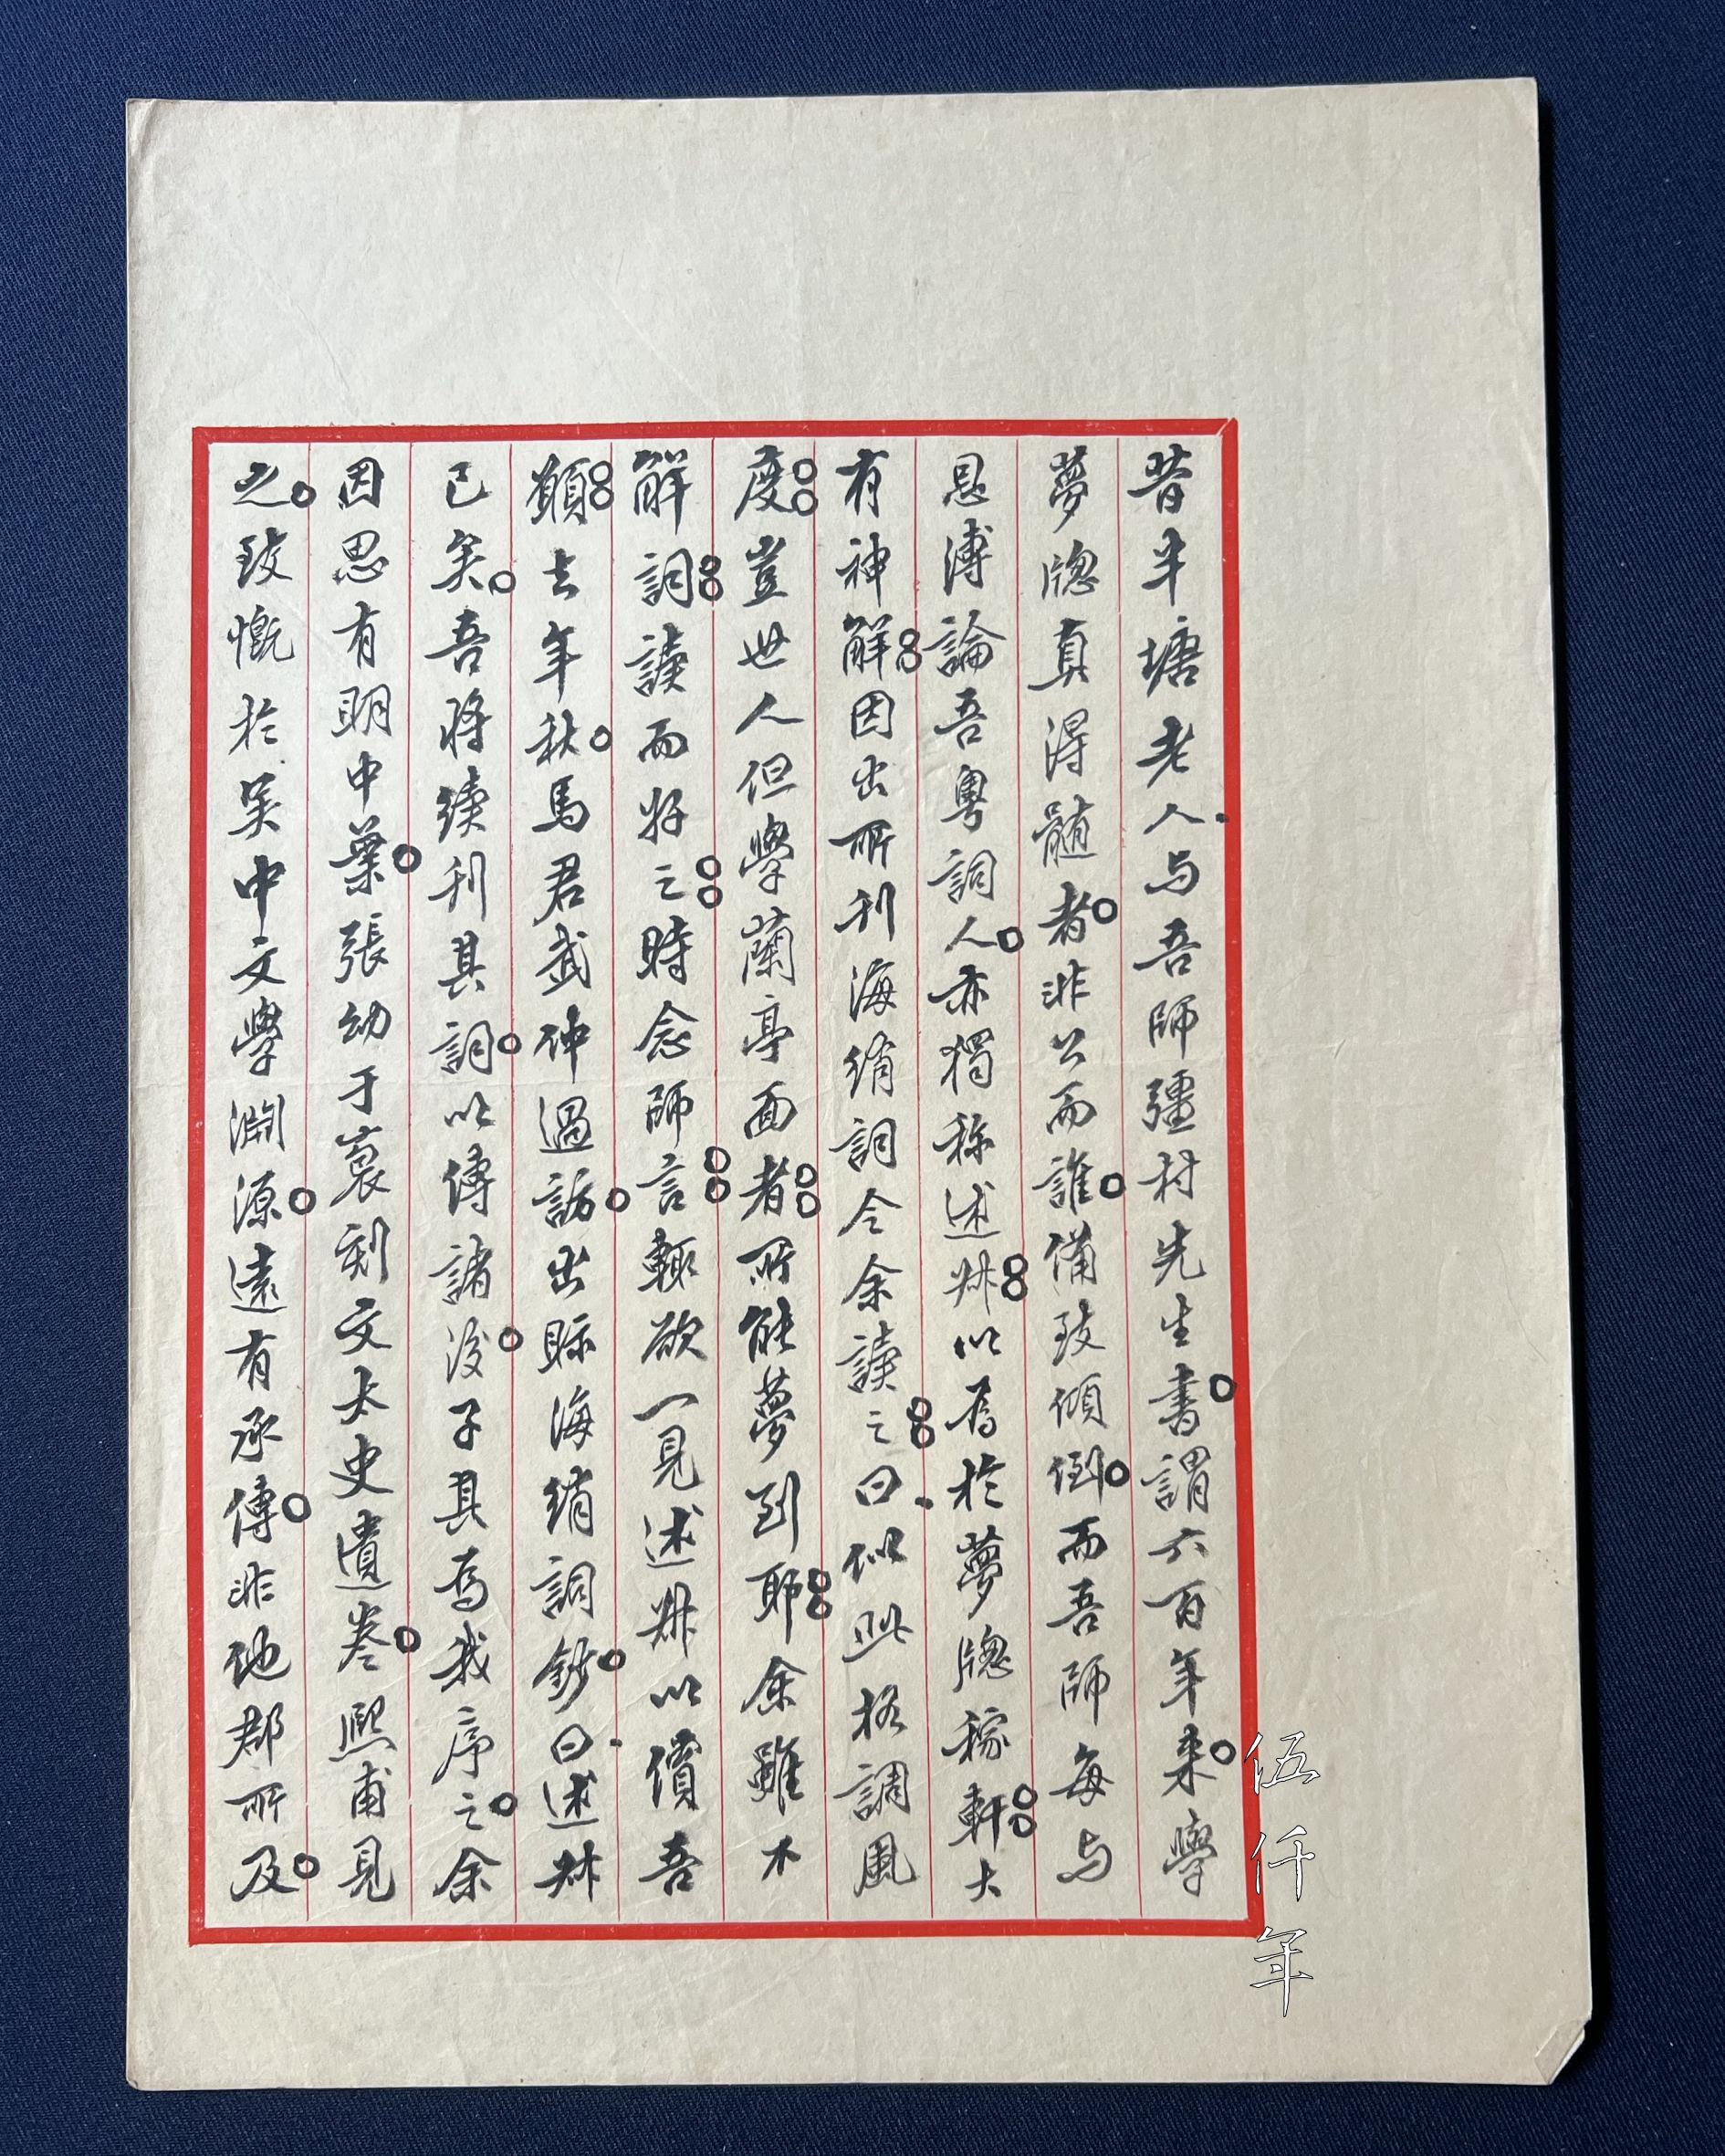 昔半塘老人与吾師彊村先生書謂六百年來學
夢牕真得髓者非公而誰備致傾倒而吾師每与
思溥論吾粤詞人亦獨称述叔以為於夢牕稼軒大
有神解因出所刊海綃詞令余讀之曰似此格調風
度豈世人但學蘭亭面者所能夢到耶余雖不
解詞讀而好之時念師言輒欲一見述叔以償吾
願去年秋馬君武仲過訪出眎海綃詞鈔曰述叔
已矣吾將續刊其詞以傳諸後子其為我序之余
因思有明中葉張幼于裒刻文太史遺卷熙甫見
之致慨於吴中文學淵源遠有承傳非他郡所及
伍仟年